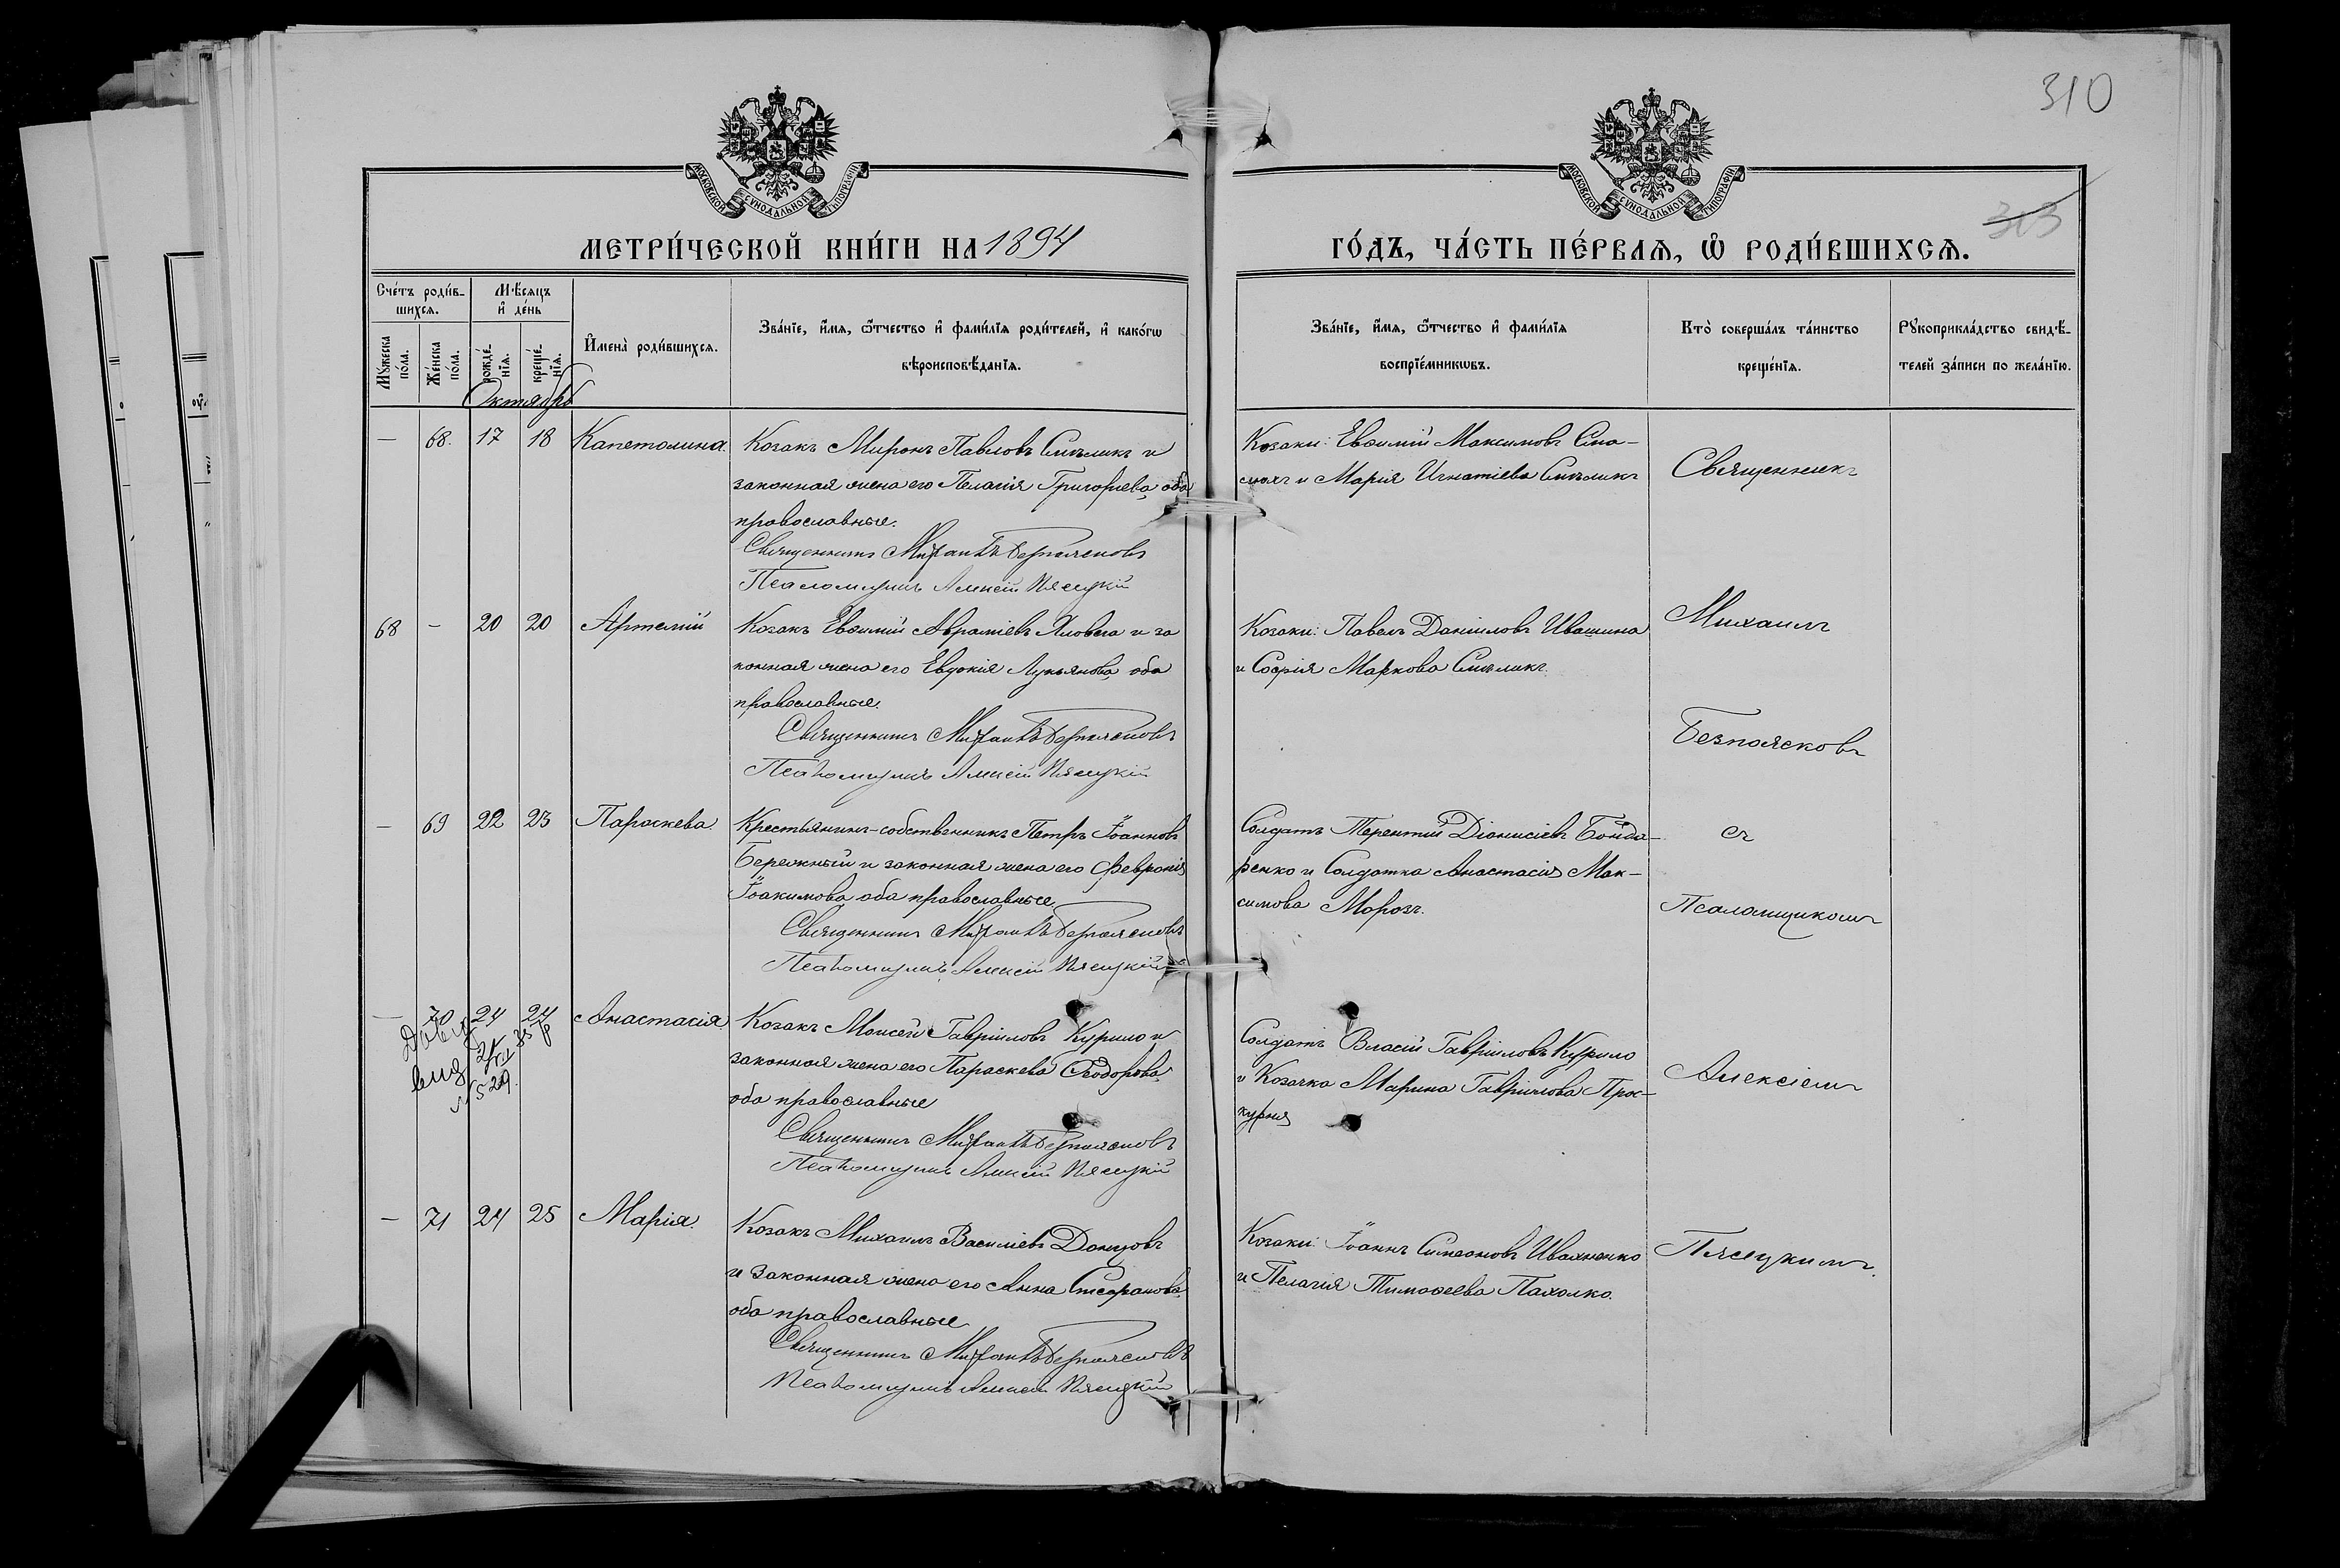 310
МОСКОВСКОЙ СУНОДАЛЬНОЙ ТИПОГРАФІИ
МОСКОВСКОЙ СУНОДАЛЬНОЙ ТИПОГРАФІИ
303
МЕТРИ́ЧЕСКОЙ КНИ́ГИ НА 1894
ГО́ДЪ, ЧА́СТЬ ПЕ́РВАѦ, Ѡ҆ РОДИ́ВШИХСѦ.
Сче́тъ роди́в-
шихсѧ.
Мꙋ́жеска
по́ла.
Же́нска
по́ла.
Мѣ́сѧцъ
и҆ де́нь
рожде́-
нїѧ.
креще́-
нїѧ.
И҆мена̀ роди́вшихсѧ.
Зва́нїе, и҆́мѧ, ѻ҆́тчество и҆ фами́лїѧ роди́телей, и҆ како́гѡ
вѣроисповѣ́данїѧ.
Зва́нїе, и҆́мѧ, ѻ҆́тчество и҆ фами́лїѧ
воспрїе́мникѡвъ.
Кто̀ соверша́лъ та́инство
креще́нїѧ.
Рꙋкоприкла́дство свидѣ́-
телей за́писи по жела́нїю.
Октябрь
— 68. 17 18 Капетолина.
Козакъ Миронъ Павловъ Смѣликъ и
законная жена его Пелагія Григорьева, оба
православные.
Священникъ Михаилъ Безпоясковъ
Псаломщикъ Алексій Пясецкій
Козаки: Евѳимій Максимовъ
и Марія Игнатіева Смѣликъ
Священникъ
68 — 20 20 Артемій
Козакъ Евѳимій Авраміевъ Яловега и за
конная жена его Евдокія Лукьянова, оба
православные.
Священникъ Михаилъ Безпоясковъ
Псаломщикъ Алексій Пясецкій
Козаки: Павелъ Даніиловъ Ивашина
и Софія Маркова Смѣликъ.
Михаилъ
Безпоясковъ
— 69 22 23 Параскева.
Крестьянинъ-собственникъ Петръ Іоанновъ
Бережный и законная жена его Февронія
Іоакимова, оба православные.
Священникъ Михаилъ Безпоясковъ
Псаломщикъ Алексій Пясецкій
Солдатъ Терентій Діонисіевъ Бонда-
ренко и Солдатка Анастасія Мак-
симова Морозъ.
съ
Псаломщикомъ
— 70 24 24 Анастасія
№ 529.
Козакъ Моисей Гавріиловъ Курило и
законная жена его Параскева Ѳеодорова,
оба православные
Священникъ Михаилъ Безпоясковъ
Псаломщикъ Алексій Пясецкій
Солдатъ Власій Гавріиловъ Курило
и Козачка Марина Гавріилова Прос-
курня
Алексіемъ
— 71 24 25 Марія.
Козакъ Михаилъ Василіевъ Донцовъ
и законная жена его Анна Стефанова,
оба православные
Священникъ Михаилъ Безпоясковъ
Псаломщикъ Алексій Пясецкій
Козаки: Іоаннъ Симеоновъ Иваненко
и Пелагія Тимоѳеева Пахолко.
Пясецкимъ.